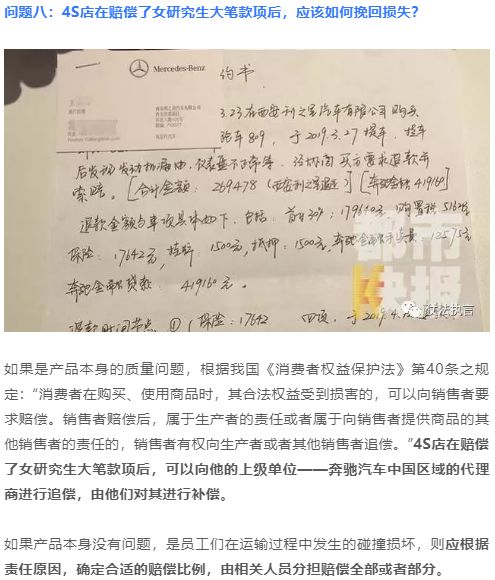 问题八：4S店在赔偿了女研究生大笔款项后，应该如何挽回损失？
Mercedes-Benz
约书
3.23在西安利之星汽车有限公司购买
于2019.3.27提车，提车
后发现发动机漏油，
索赔。【合计金额：269478（西安利之星退）】【奔驰金融419160】
退款金额与车况具体如下，包括：首付30%：179660元，购置税
保险：17642元，挂牌：1500元，抵押：1500元，奔驰金融手续费：12575元
奔驰金融贷款：419160元。
退款时间节点 ① 保险：17642
都市
快报
以法执言
如果是产品本身的质量问题，根据我国《消费者权益保护法》第40条之规
定：“消费者在购买、使用商品时，其合法权益受到损害的，可以向销售者要
求赔偿。销售者赔偿后，属于生产者的责任或者属于向销售者提供商品的其
他销售者的责任的，销售者有权向生产者或者其他销售者追偿。”4S店在赔偿
了女研究生大笔款项后，可以向他的上级单位——奔驰汽车中国区域的代理
商进行追偿，由他们对其进行补偿。
如果产品本身没有问题，是员工们在运输过程中发生的碰撞损坏，则应根据
责任原因，确定合适的赔偿比例，由相关人员分担赔偿全部或者部分。